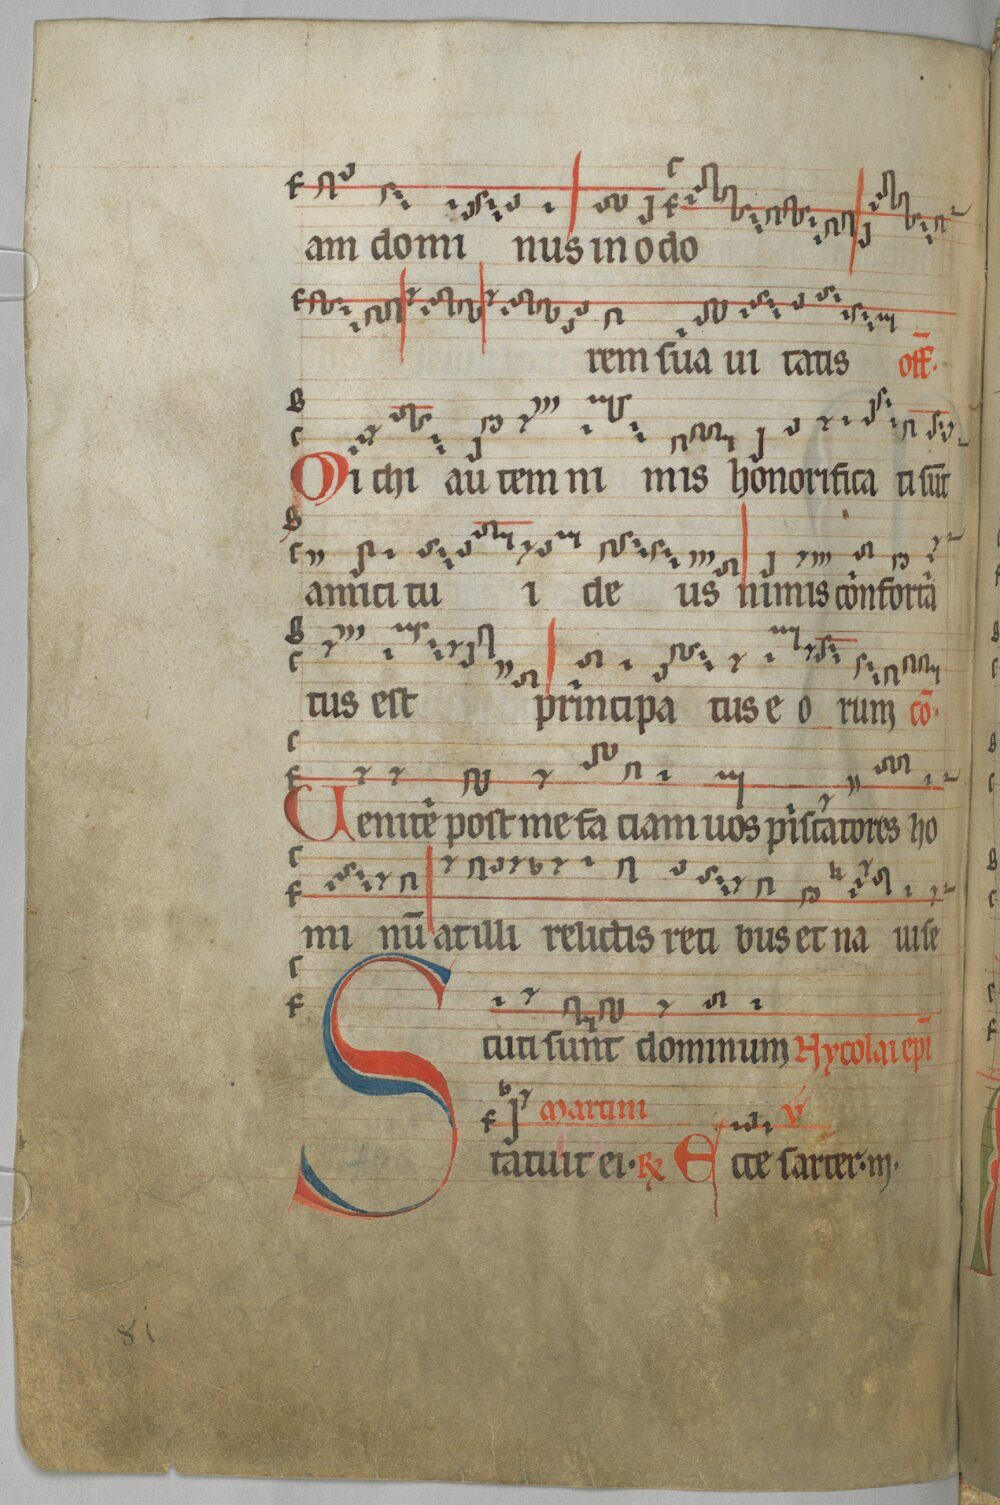 am domi nus in odo
rem sua ui tatis off̄.
Michi au tem ni mis honorifica ti sūt
amici tu i de us nimis confortā
tus est principa tus e o rum cō.
Uenite post me fa ciam uos piscatores ho
mi nū at illi relictis reti bus et na ui se
cuti sunt dominum Nycolai ep̄i
Martini V̄
Statuit ei. R̄ Ecce sacer. m.
81